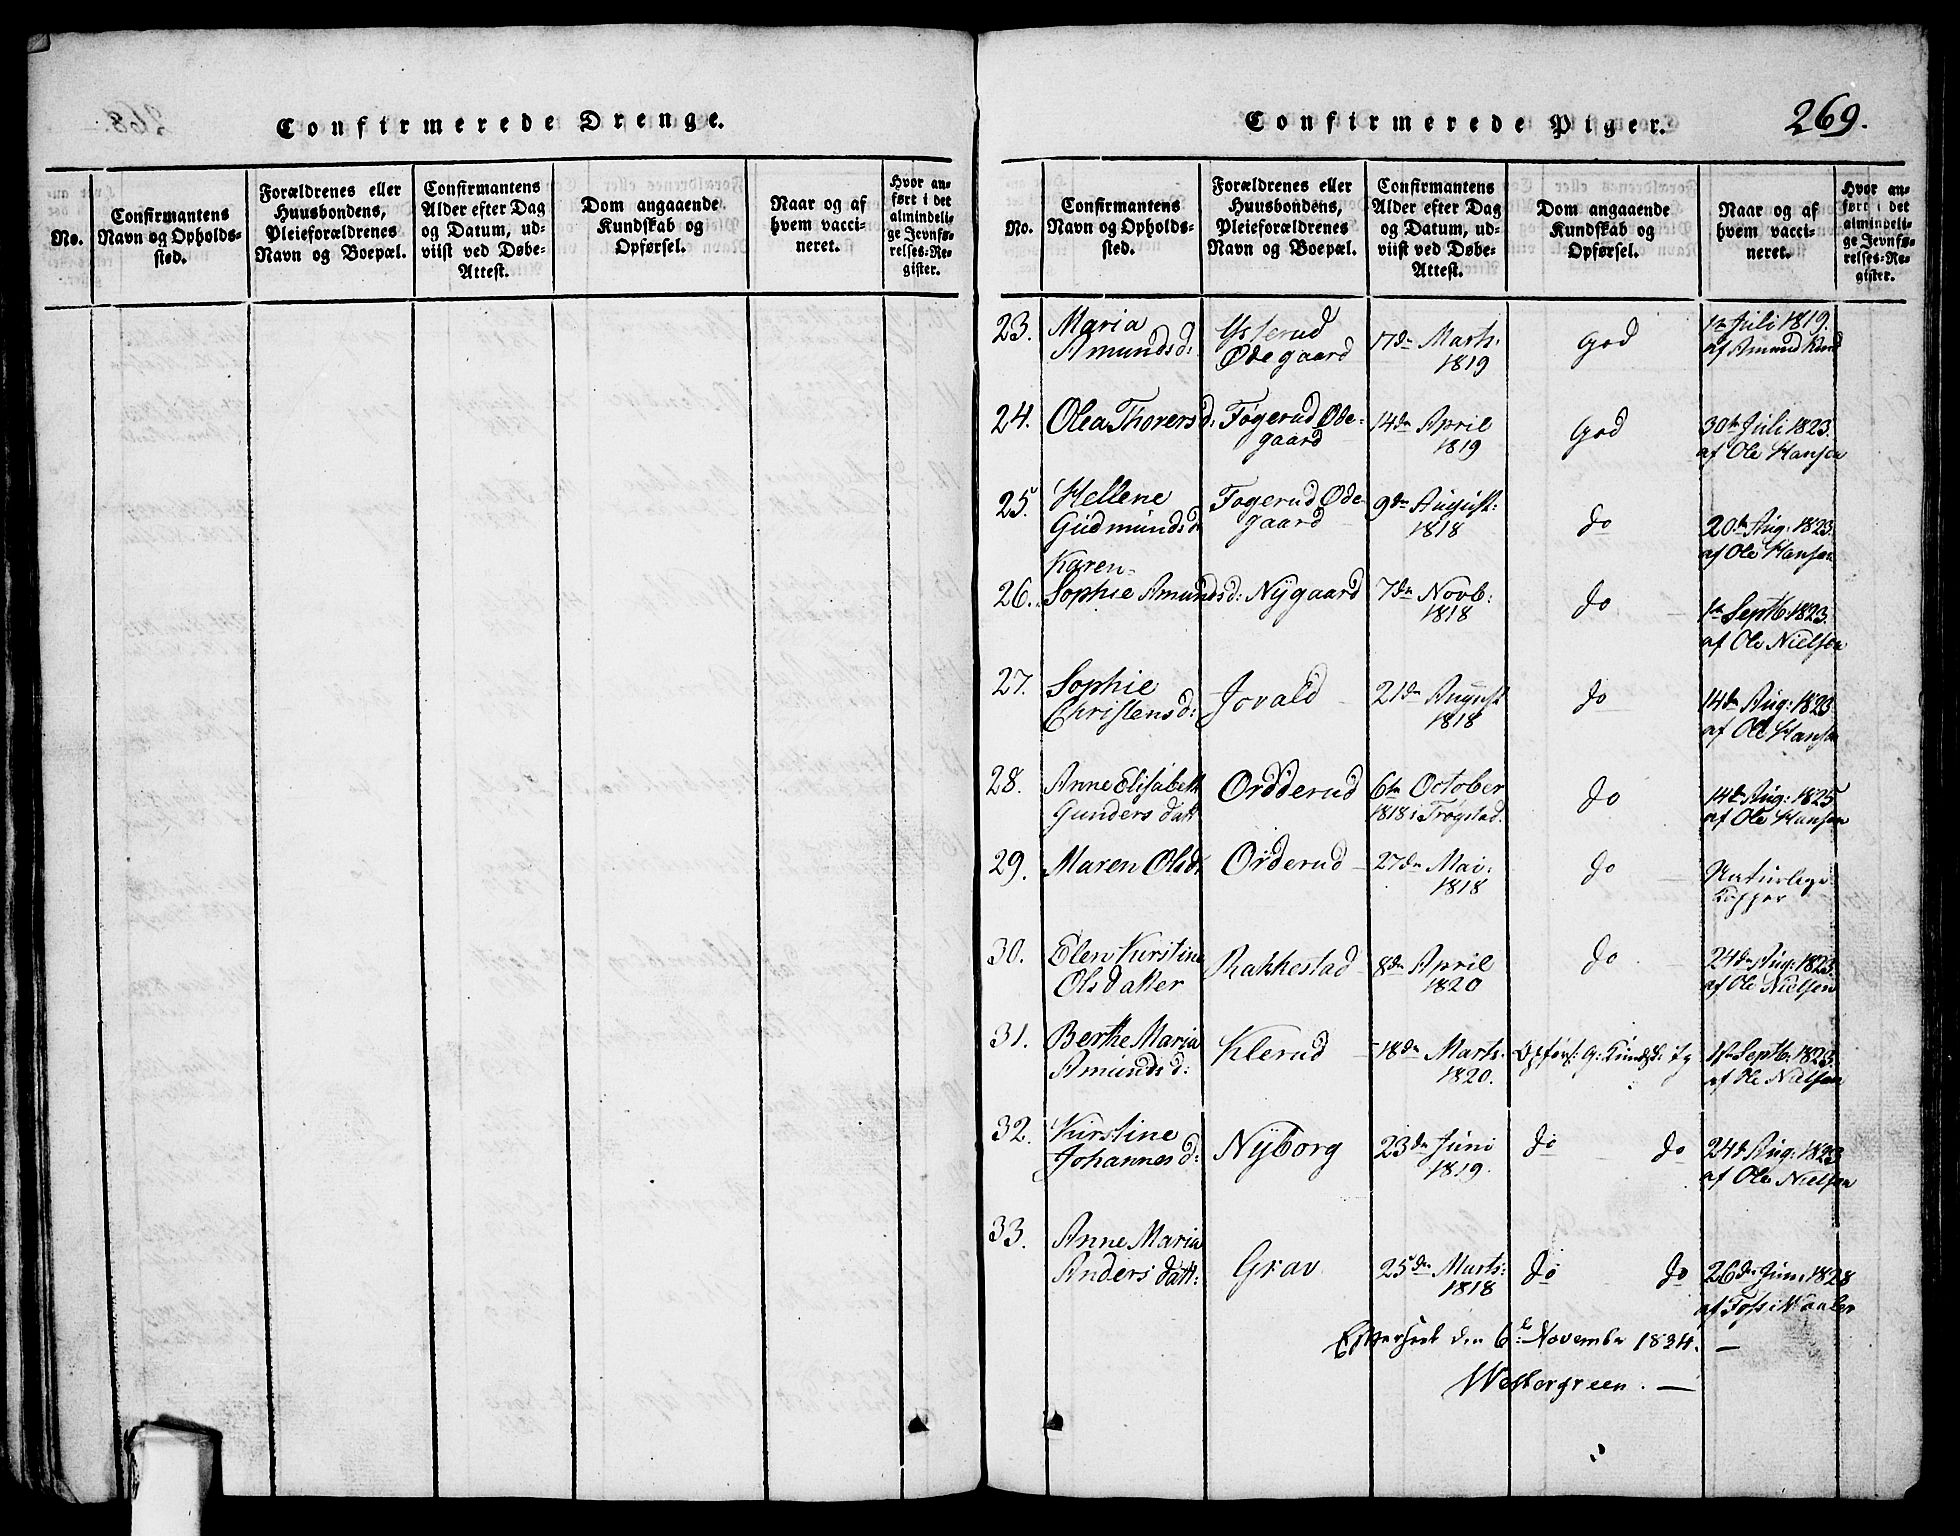 Confirmerede Drenge.
No.
Confirmantens Navn og Opholds-sted.
Forældrenes eller Huusbondens, Pleieforældrenes Navn og Boepæl.
Confirmantens Alder efter Dag og Datum, ud-viist ved Døbe-Attest.
Dom angaaende Kundskab og Opførsel.
Naar og af hvem vacci-neret.
Hvor an-ført i det almindeli-ge Jevnfø-relses-Re-gister.
Confirmerede Piger.
269.
No.
Confirmantens Navn og Opholds-sted.
Forældrenes eller Huusbondens, Pleieforældrenes Navn og Boepæl.
Confirmantens Alder efter Dag og Datum, ud-viist ved Døbe-Attest.
Dom angaaende Kundskab og Opførsel.
Naar og af hvem vacci-neret.
Hvor an-ført i det almindeli-ge Jevnfø-relses-Re-gister.
23. Maria Ysterud 17de Marts: God Juli 1819.
Amundsd: Ødegaard 1819 af Amund
24. Olea Thoresd: Føgerud Øde- 14de April God 30te Juli 1823.
gaard 1819 af Ole Hansen
25. Hellene Fogerud Øde- 9de August: do 20de Aug: 1823.
Gudmundsd gaard 1818 af Ole Hansen
Karen-
26. Sophie Amundsd: Nÿgaard 7de Novb: do 1te Septb: 1823.
1818 af Ole Nielsen
27. Sophie Jovald 21de August do 14de Aug: 1823
Christensd: 1818 af Ole Hansen
28. Anne Elisabeth Ordderud 6te October do 14de Aug: 1825
Gunders datt 1818 i Trøgstad. af Ole Hansen
29. Maren Olsd: Orderud 27de Mai: do Naturlige
1818 Kopper
30. Elen Kirstine Rakkestad 8de April do 24de Aug: 1823.
Olsdatter 1820 af Ole Nielsen
31. Berthe Maria Klerud 18de Marts: Opførs: G: Kundsk: tg 1te Septb: 1823.
Amundsd: 1820. af Ole Nielsen
32. Kirstine Nÿborg 23de Juni do do 24de Aug: 1823
Johannesd: 1819. af Ole Nielsen
33. Anne Maria Grav 25de Marts: do do 26de Juni 1828
Anders datt: 1818 af Foss i Waaler
Efterseet den 6te November 1834. —
Westergreen. —